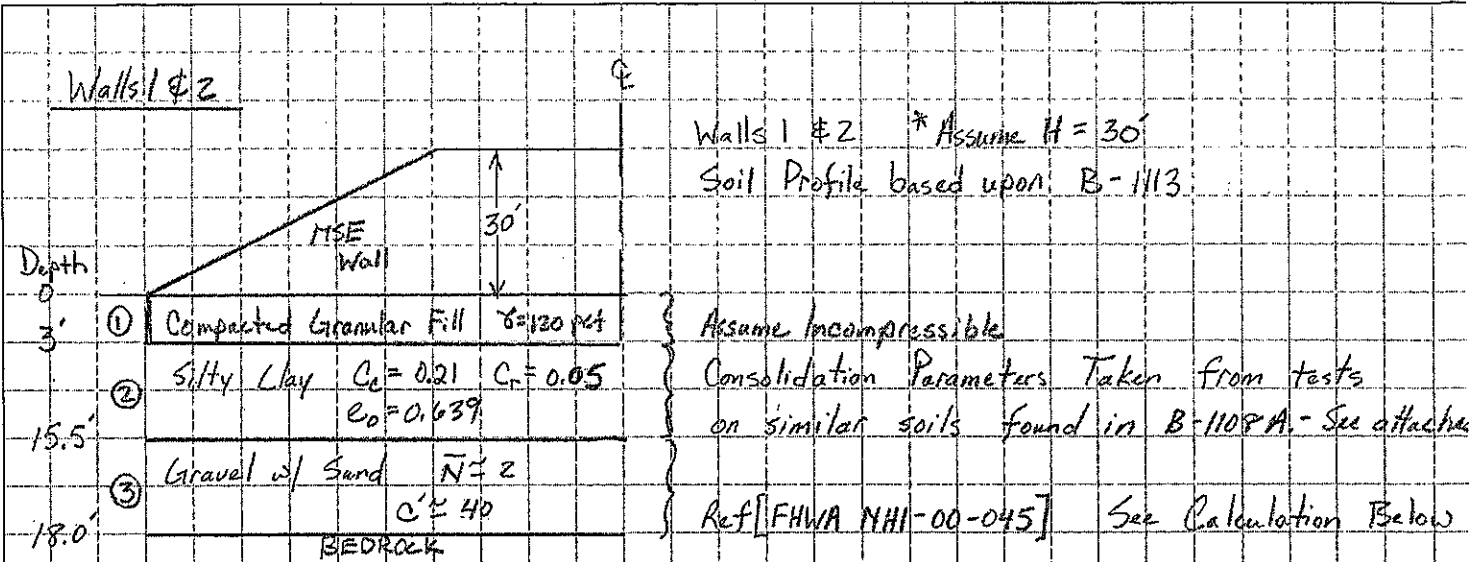 Walls 1 & 2
℄
Walls 1 & 2 * Assume H = 30'
Soil Profile based upon B-1113
30'
MSE
Wall
Depth
0
3'
① Compacted Granular Fill γ=120 pcf
Assume Incompressible
② Silty Clay Cc = 0.21 Cr = 0.05
e₀ = 0.639
Consolidation Parameters Taken from tests
on similar soils found in B-1108A. - See attached
15.5'
③ Gravel w/ Sand N̄ ≅ 2
C' ≅ 40
Ref [FHWA NHI-00-045] See Calculation Below
18.0'
BEDROCK